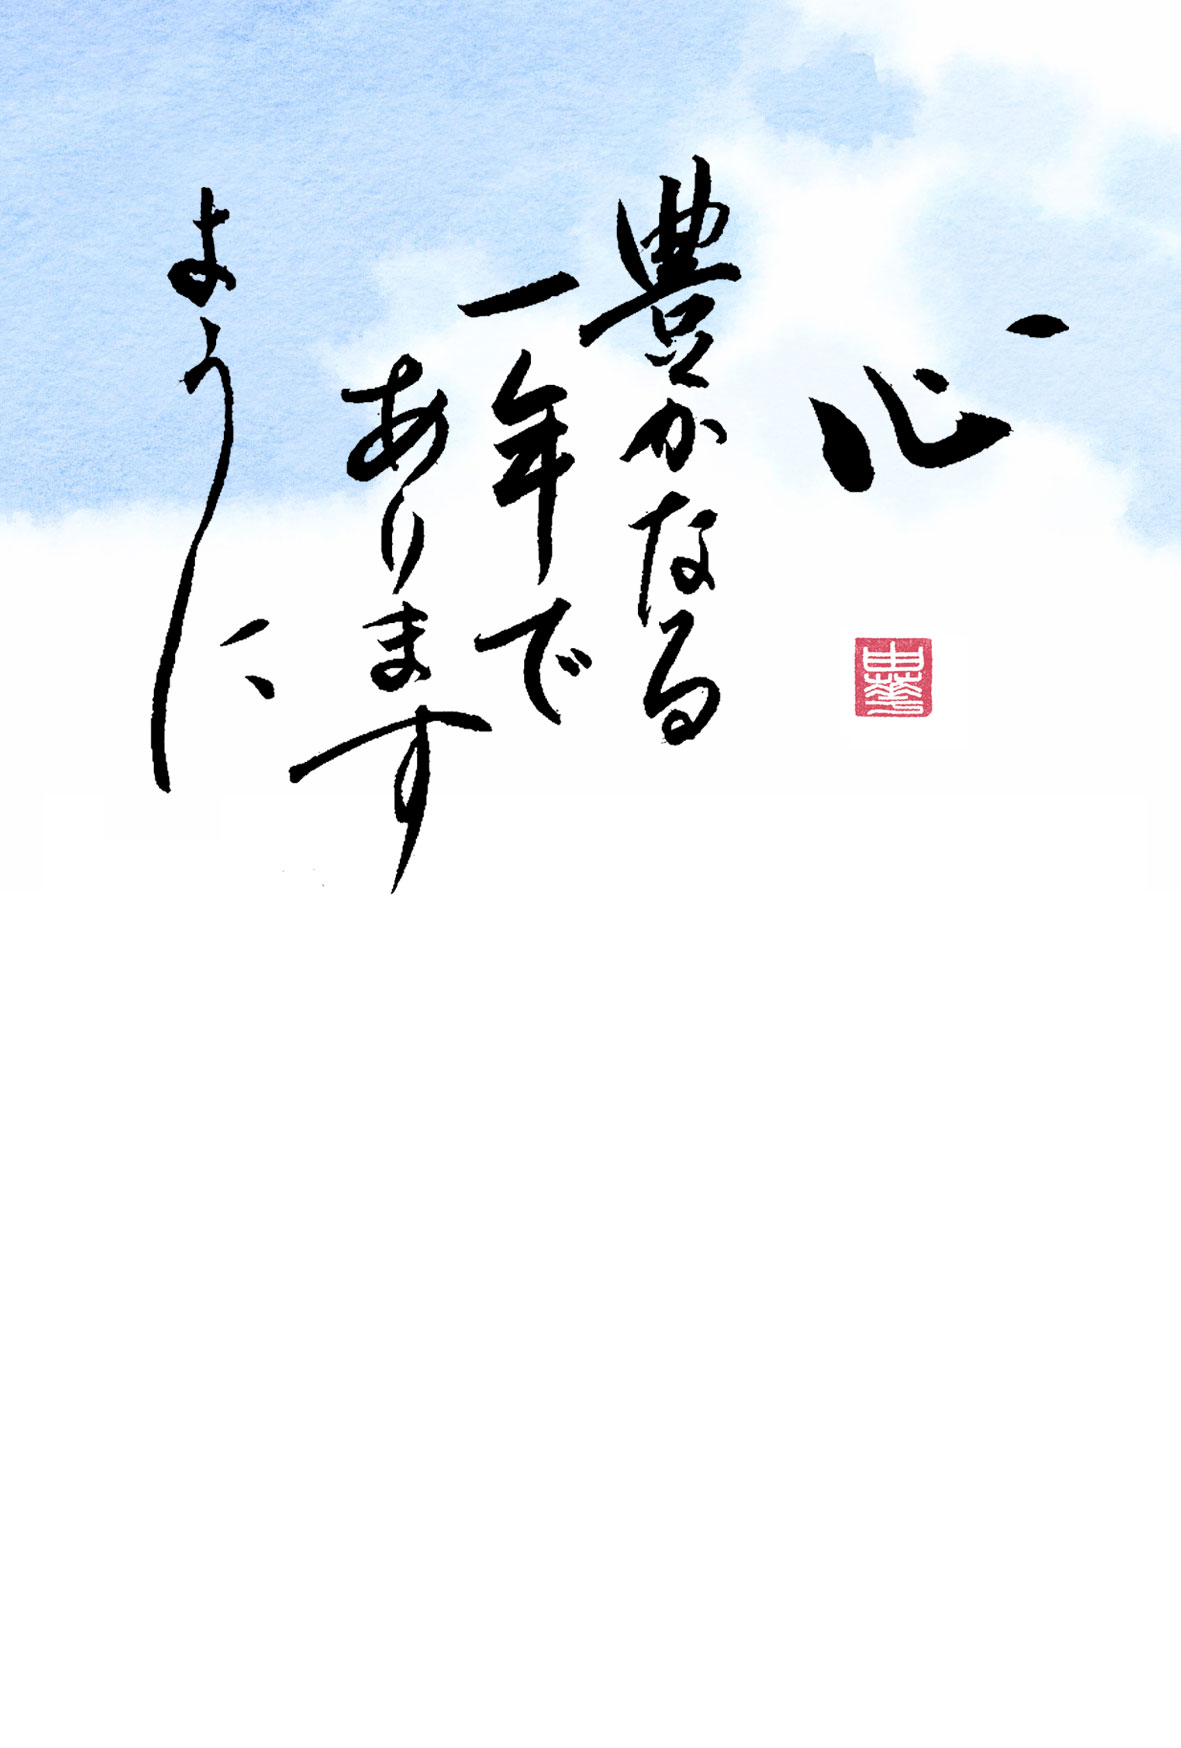 心
豊かなる
一年で
あります
ように